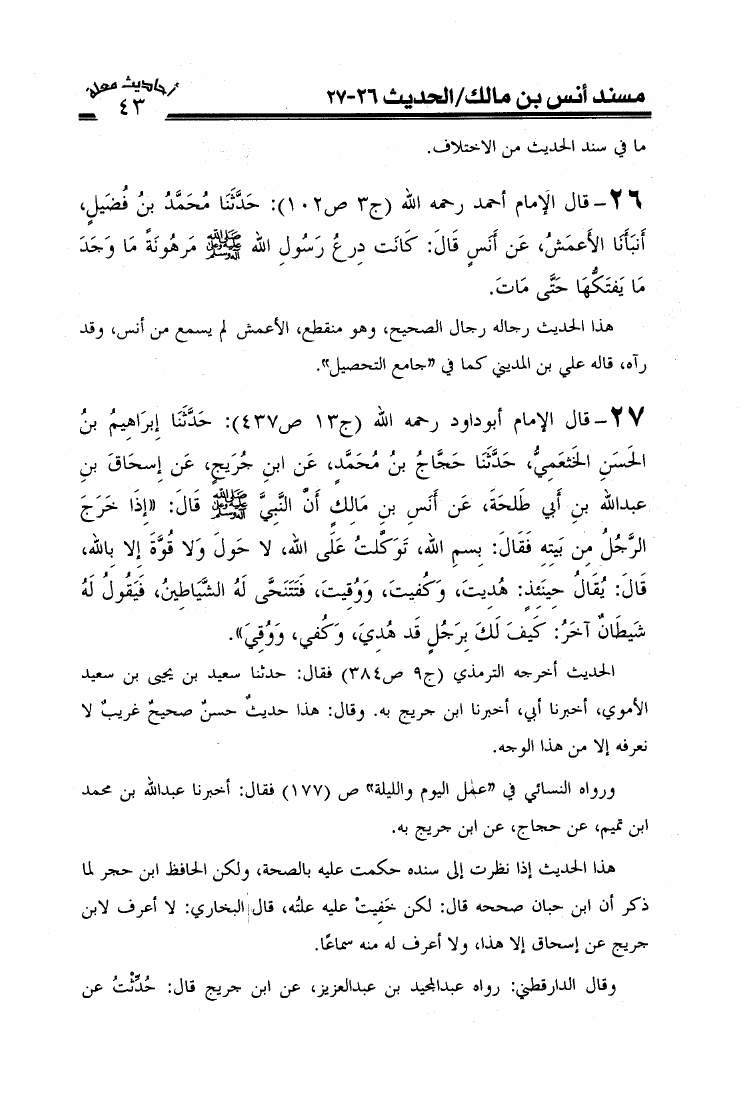 مسند أنس بن مالك/الحديث ٢٦-٢٧
أحاديث معلة
٤٣
ما في سند الحديث من الاختلاف.
٢٦- قال الإمام أحمد رحمه الله (ج٣ ص١٠٢): حَدَّثَنَا مُحَمَّدُ بنُ فُضَيلٍ،
أَنبَأَنَا الأَعمَشُ، عَن أَنَسٍ قَالَ: كَانَت دِرعُ رَسُولِ الله ﷺ مَرهُونَةً مَا وَجَدَ
مَا يَفتَكُّهَا حَتَّى مَاتَ.
هذا الحديث رجاله رجال الصحيح، وهو منقطع، الأعمش لم يسمع من أنس، وقد
رآه، قاله علي بن المديني كما في «جامع التحصيل».
٢٧- قال الإمام أبوداود رحمه الله (ج١٣ ص٤٣٧): حَدَّثَنَا إِبرَاهِيمُ بنُ
الحَسَنِ الخَثعَمِيُّ، حَدَّثَنَا حَجَّاجُ بنُ مُحَمَّدٍ، عَن ابنِ جُرَيجٍ، عَن إِسحَاقَ بنِ
عبدالله بنِ أَبي طَلحَةَ، عَن أَنَسِ بنِ مَالِكٍ أَنَّ النَّبِيَّ ﷺ قَالَ: «إِذَا خَرَجَ
الرَّجُلُ مِن بَيتِهِ فَقَالَ: بِسمِ الله، تَوَكَّلتُ عَلَى الله، لا حَولَ وَلا قُوَّةَ إلا بِالله،
قَالَ: يُقَالُ حِينَئِذٍ: هُدِيتَ، وَكُفيتَ، وَوُقِيتَ، فَتَتَنَحَّى لَهُ الشَّيَاطِينُ، فَيَقُولُ لَهُ
شَيطَانٌ آخَرُ: كَيفَ لَكَ بِرَجُلٍ قَد هُدِيَ، وَكُفي، وَوُقِيَ».
الحديث أخرجه الترمذي (ج٩ ص٣٨٤) فقال: حدثنا سعيد بن يحيى بن سعيد
الأموي، أخبرنا أبي، أخبرنا ابن جريج به. وقال: هذا حديثٌ حسنٌ صحيحٌ غريبٌ لا
نعرفه إلا من هذا الوجه.
ورواه النسائي في «عمل اليوم والليلة» ص (١٧٧) فقال: أخبرنا عبدالله بن محمد
ابن تميم، عن حجاج، عن ابن جريج به.
هذا الحديث إذا نظرت إلى سنده حكمت عليه بالصحة، ولكن الحافظ ابن حجر لما
ذكر أن ابن حبان صححه قال: لكن خَفِيتْ عليه علتُه، قال البخاري: لا أعرف لابن
جريج عن إسحاق إلا هذا، ولا أعرف له منه سماعًا.
وقال الدارقطني: رواه عبدالمجيد بن عبدالعزيز، عن ابن جريج قال: حُدِّثْتُ عن